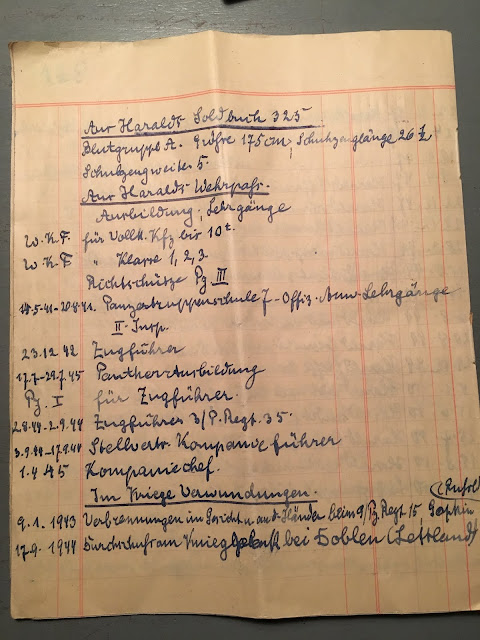 Aus Haralds Soldbuch 325
Blutgruppe A. Größe 175 cm, Schuhzeuglänge 26 ½
Schuhzeugweite 5.
Aus Haralds Wehrpass.
Ausbildung, Lehrgänge
W.K.F. für Vollk. Kfz bis 10t.
W.K.F " Klasse 1, 2, 3.
Richtschütze Pz III
Panzertruppenschule Offiz. Anw. Lehrgänge
II. Insp.
23.12 42 Zugführer
Pantherausbildung
Pz. I für Zugführer.
2.8.44-2.9.44 Zugführer 3/P. Regt. 35.
3.9.44-17.9.44 Stellvertr. Kompanieführer
1.4 45 Kompaniechef.
Im Kriege Verwundungen.
9.1.1943 Verbrennungen im Gesicht u. an d. Händen beim 9/Pz Regt. 15
17.9. 1944 Durchschuss am Kniegelenk bei Doblen (Lettland)